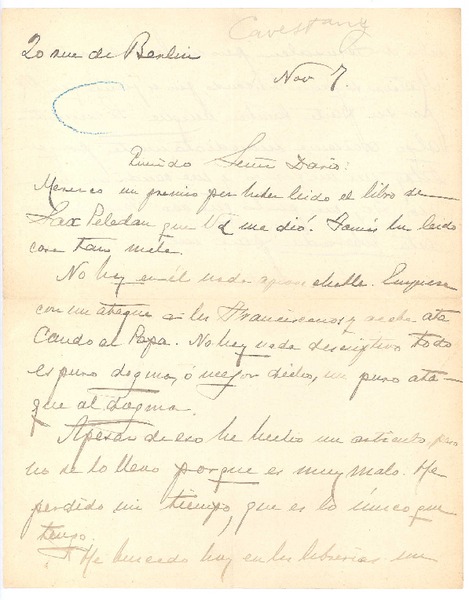 Cavestany
20 rue de Berlin
Nov 7.
Querido Señor Dario:
Merezco un premio por haber leido el libro de
Sax Peledan que Vd me dió. Jamás he leido
cosa tan mala.
No hay en él nada aprovechable. Empieza
con un ataque a los Franciscanos y acaba ata
cando al Papa. No hay nada descriptivo todo
es puro dogma, ó mejor dicho, un puro ata-
que al dogma.
Apesar de eso he hecho un articulo, pero
no se lo llevo porque es muy malo. He
perdido mi tiempo, que es lo único que
tengo.
He buscado hoy en las librerias un